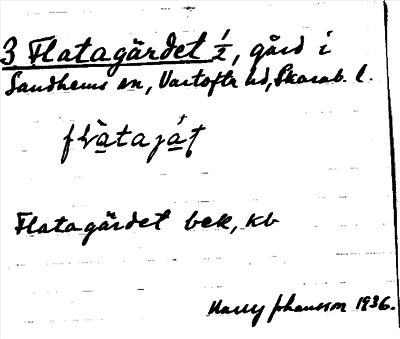 3 Flatagärdet 1/2, gård i
Sandhems sn, Vartofta hd, Skarab. l.
Flatagärdet bek, kb
Harry Johansson 1936.